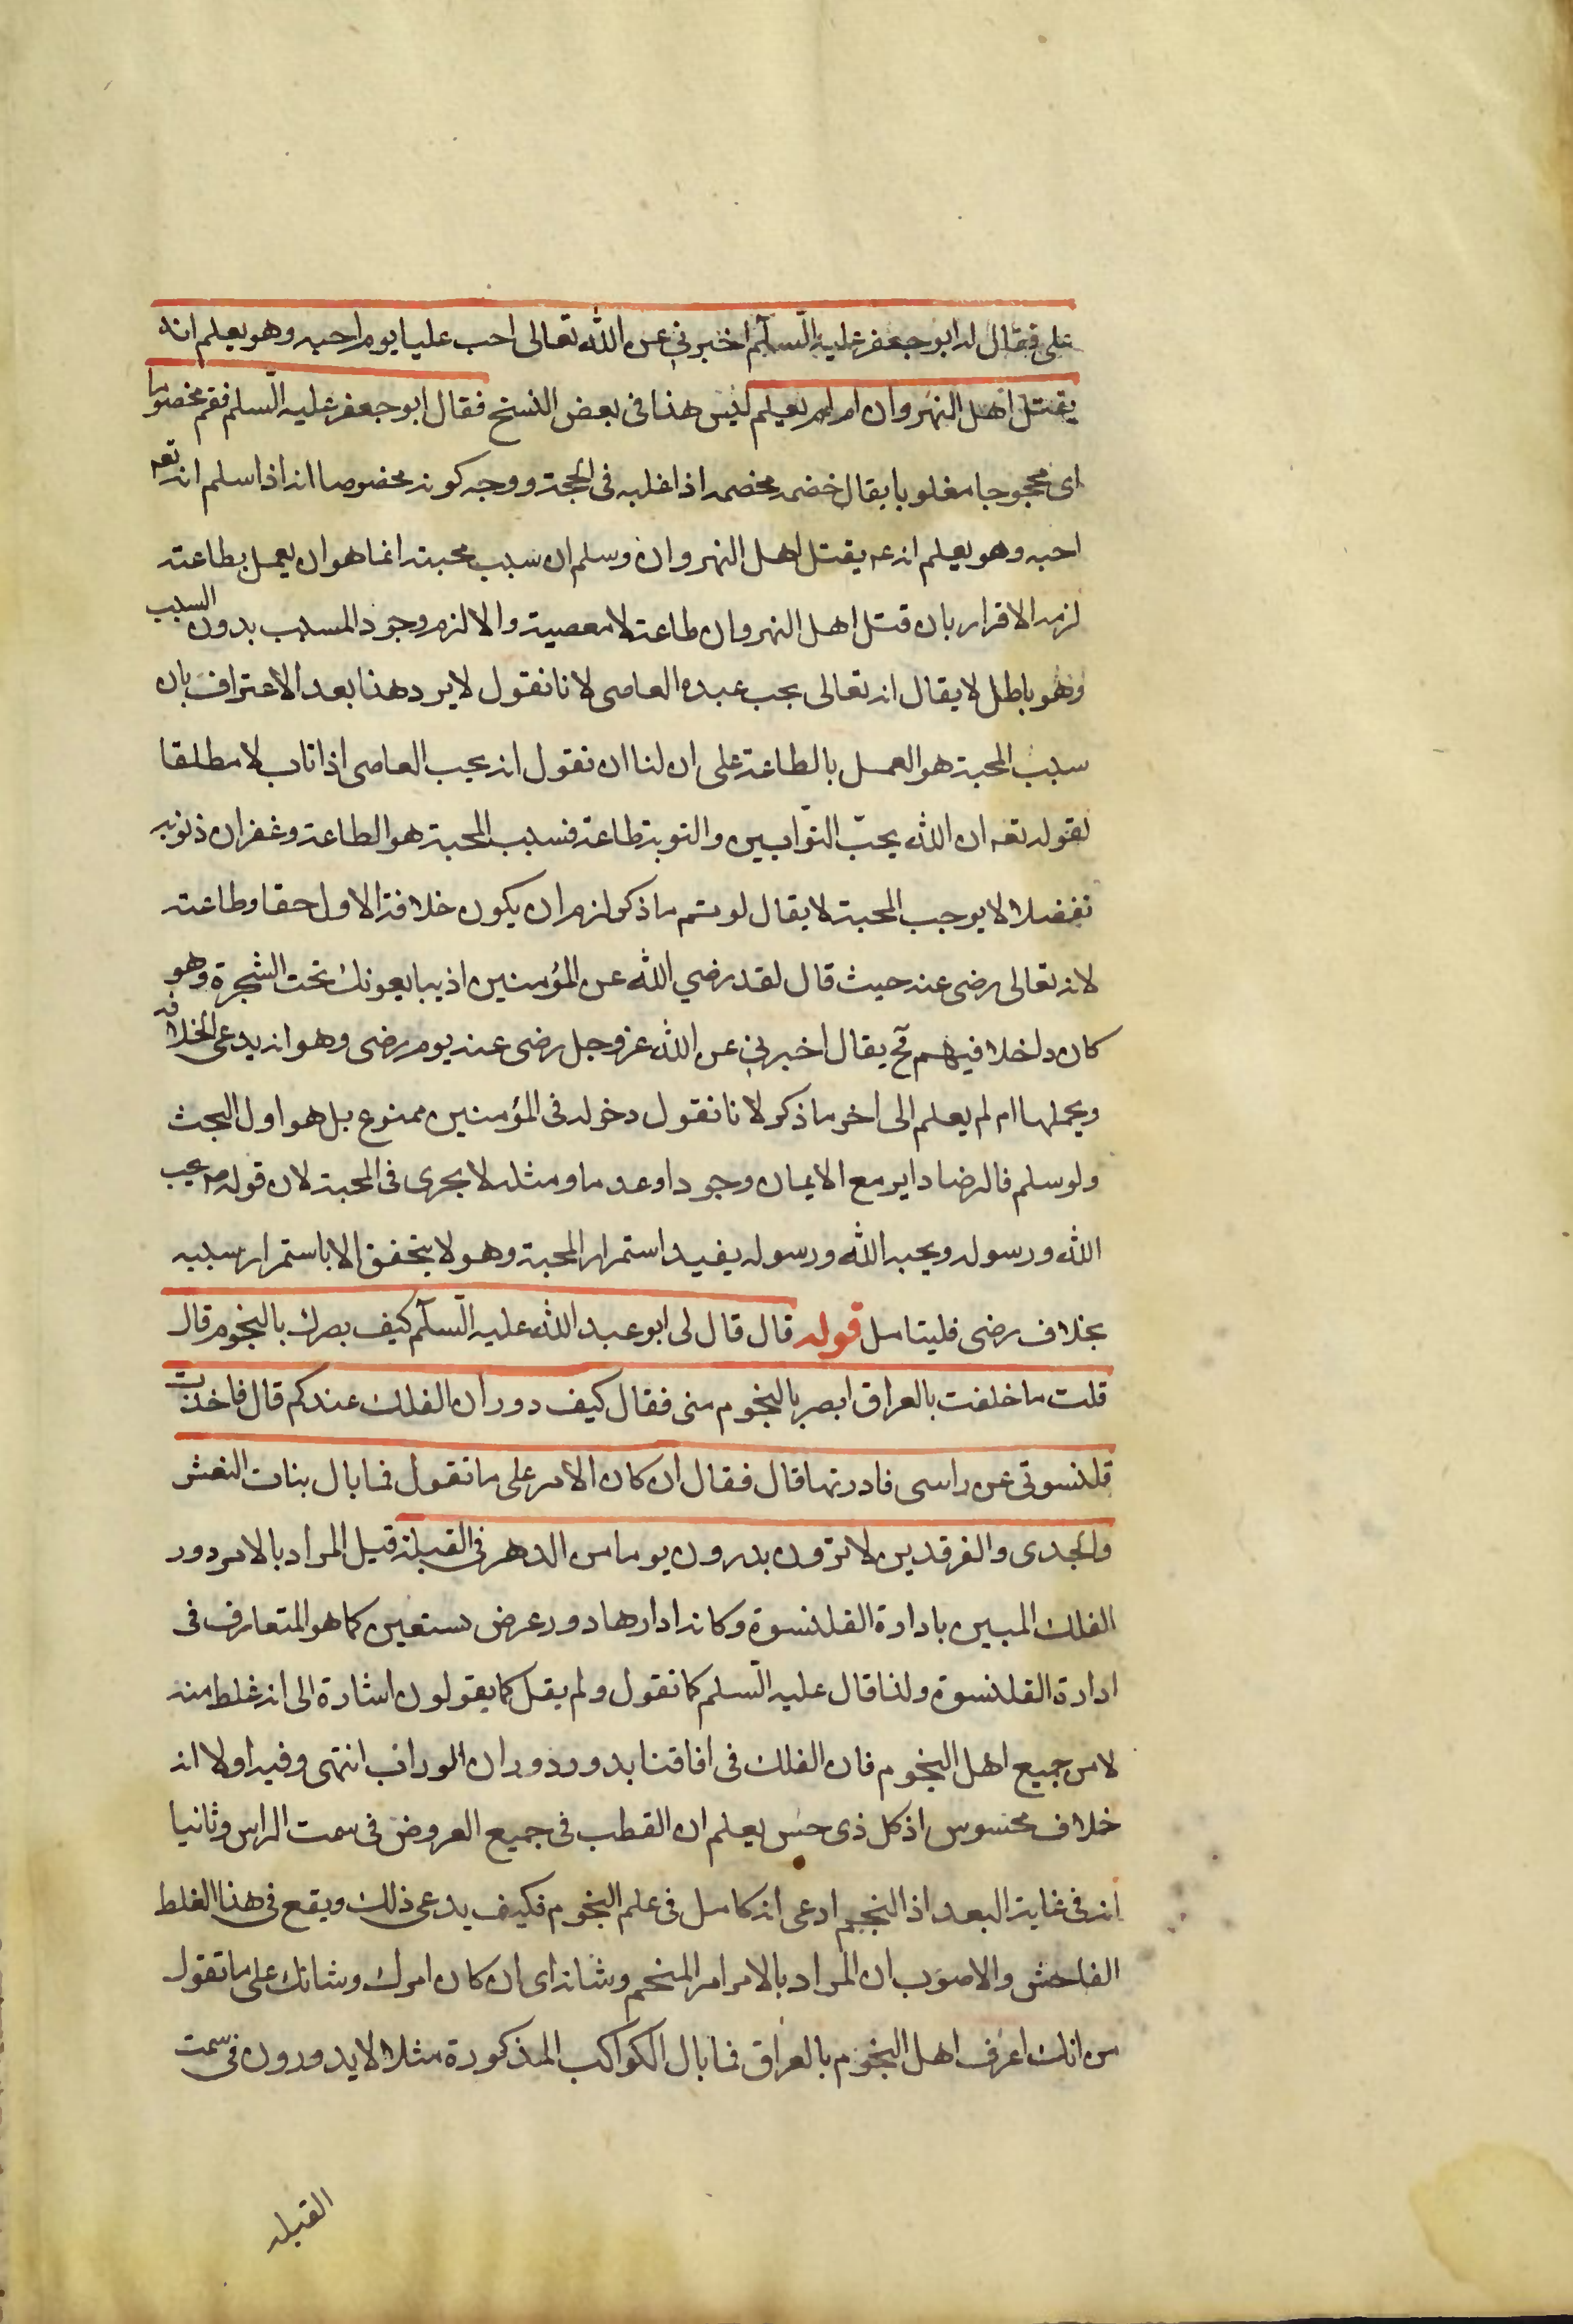 على فقال له ابو جعفر عليه السلم اخبرني عن الله تعالى احب عليا يوم احبه وهو يعلم انه
يقتل اهل النهروان ام لم يعلم ليس هذا في بعض النسخ فقال ابو جعفر عليه السلم فقم مخصوما
اى محجوجا مغلوبا يقال خصمه يخصمه اذا غلبه في الحجة ووجه كونه مخصوصا انه اذا سلم انه تعه
احبه وهو يعلم انه عه يقتل اهل النهروان وسلم ان سبب محبته انما هو ان يعمل بطاعته
لزمه الاقرار بان قتل اهل النهروان طاعة لا معصية والا لزم وجود المسبب بدون السبب
وهو باطل لا يقال انه تعالى يحب عبده العاصى لانا نقول لا يرد هذا بعد الاعتراف بان
سبب المحبة هو العمل بالطاعة على ان لنا ان نقول انه يحب العاصى اذا تاب لا مطلقا
لقوله تعه ان الله يحبّ التوّابين والتوبة طاعة فسبب المحبة هو الطاعة وغفران ذنوبه
تفضلا لا يوجب المحبة لا يقال لو تم ما ذكر لزم ان يكون خلافة الاول حقا وطاعته
لانه تعالى رضى عنه حيث قال لقد رضي الله عن المؤمنين اذ يبايعونك تحت الشجرة وهو
كان داخلا فيهم فح يقال اخبرني عن الله عز وجل رضى عنه يوم رضى وهو انه يدعى الخلافه
ويحملها ام لم يعلم الى اخر ما ذكر لانا نقول دخوله في المؤمنين ممنوع بل هو اول البحث
ولو سلم فالرضا داير مع الايمان وجودا وعدما ومثله لا يجرى في المحبة لان قوله ص يحب
الله ورسوله ويحبه الله ورسوله يفيد استمرار المحبة وهو لا يتحقق الا باستمرار سببه
بخلاف رضى فليتامل قوله قال قال لى ابو عبد الله عليه السلم كيف بصرك بالنجوم قال
قلت ما خلفت بالعراق ابصر بالنجوم منى فقال كيف دوران الفلك عندكم قال فاخذت
قلنسوتى عن راسى فادرتها قال فقال ان كان الامر على ما تقول فما بال بنات النعش
والجدى والفرقدين لا ترون يدرون يوما من الدهر في القبلة قيل المراد بالامر دور
الفلك المبين باداوة القلنسوة وكانه ادارها دور عرض تسعين كما هو المتعارف في
ادارة القلنسوة ولذا قال عليه السلم كما تقول ولم يقل كما يقولون اشارة الى انه غلط منه
لا من جميع اهل النجوم فان الفلك في افاقنا يدور دوران الموراب انتهى وفيه اولا انه
خلاف محسوس اذ كل ذى حس يعلم ان القطب في جميع العروض في سمت الراس وثانيا
انه في غاية البعد اذ المنجم ادعى انه كامل في علم النجوم فكيف يدعى ذلك ويقع في هذا الغلط
الفاحش والاصوب ان المراد بالامر امر المنجم وشانه اى ان كان امرك وشانك على ما تقول
من انك اعرف اهل النجوم بالعراق فما بال الكواكب المذكورة مثلا لا يدورون في سمت
القبله